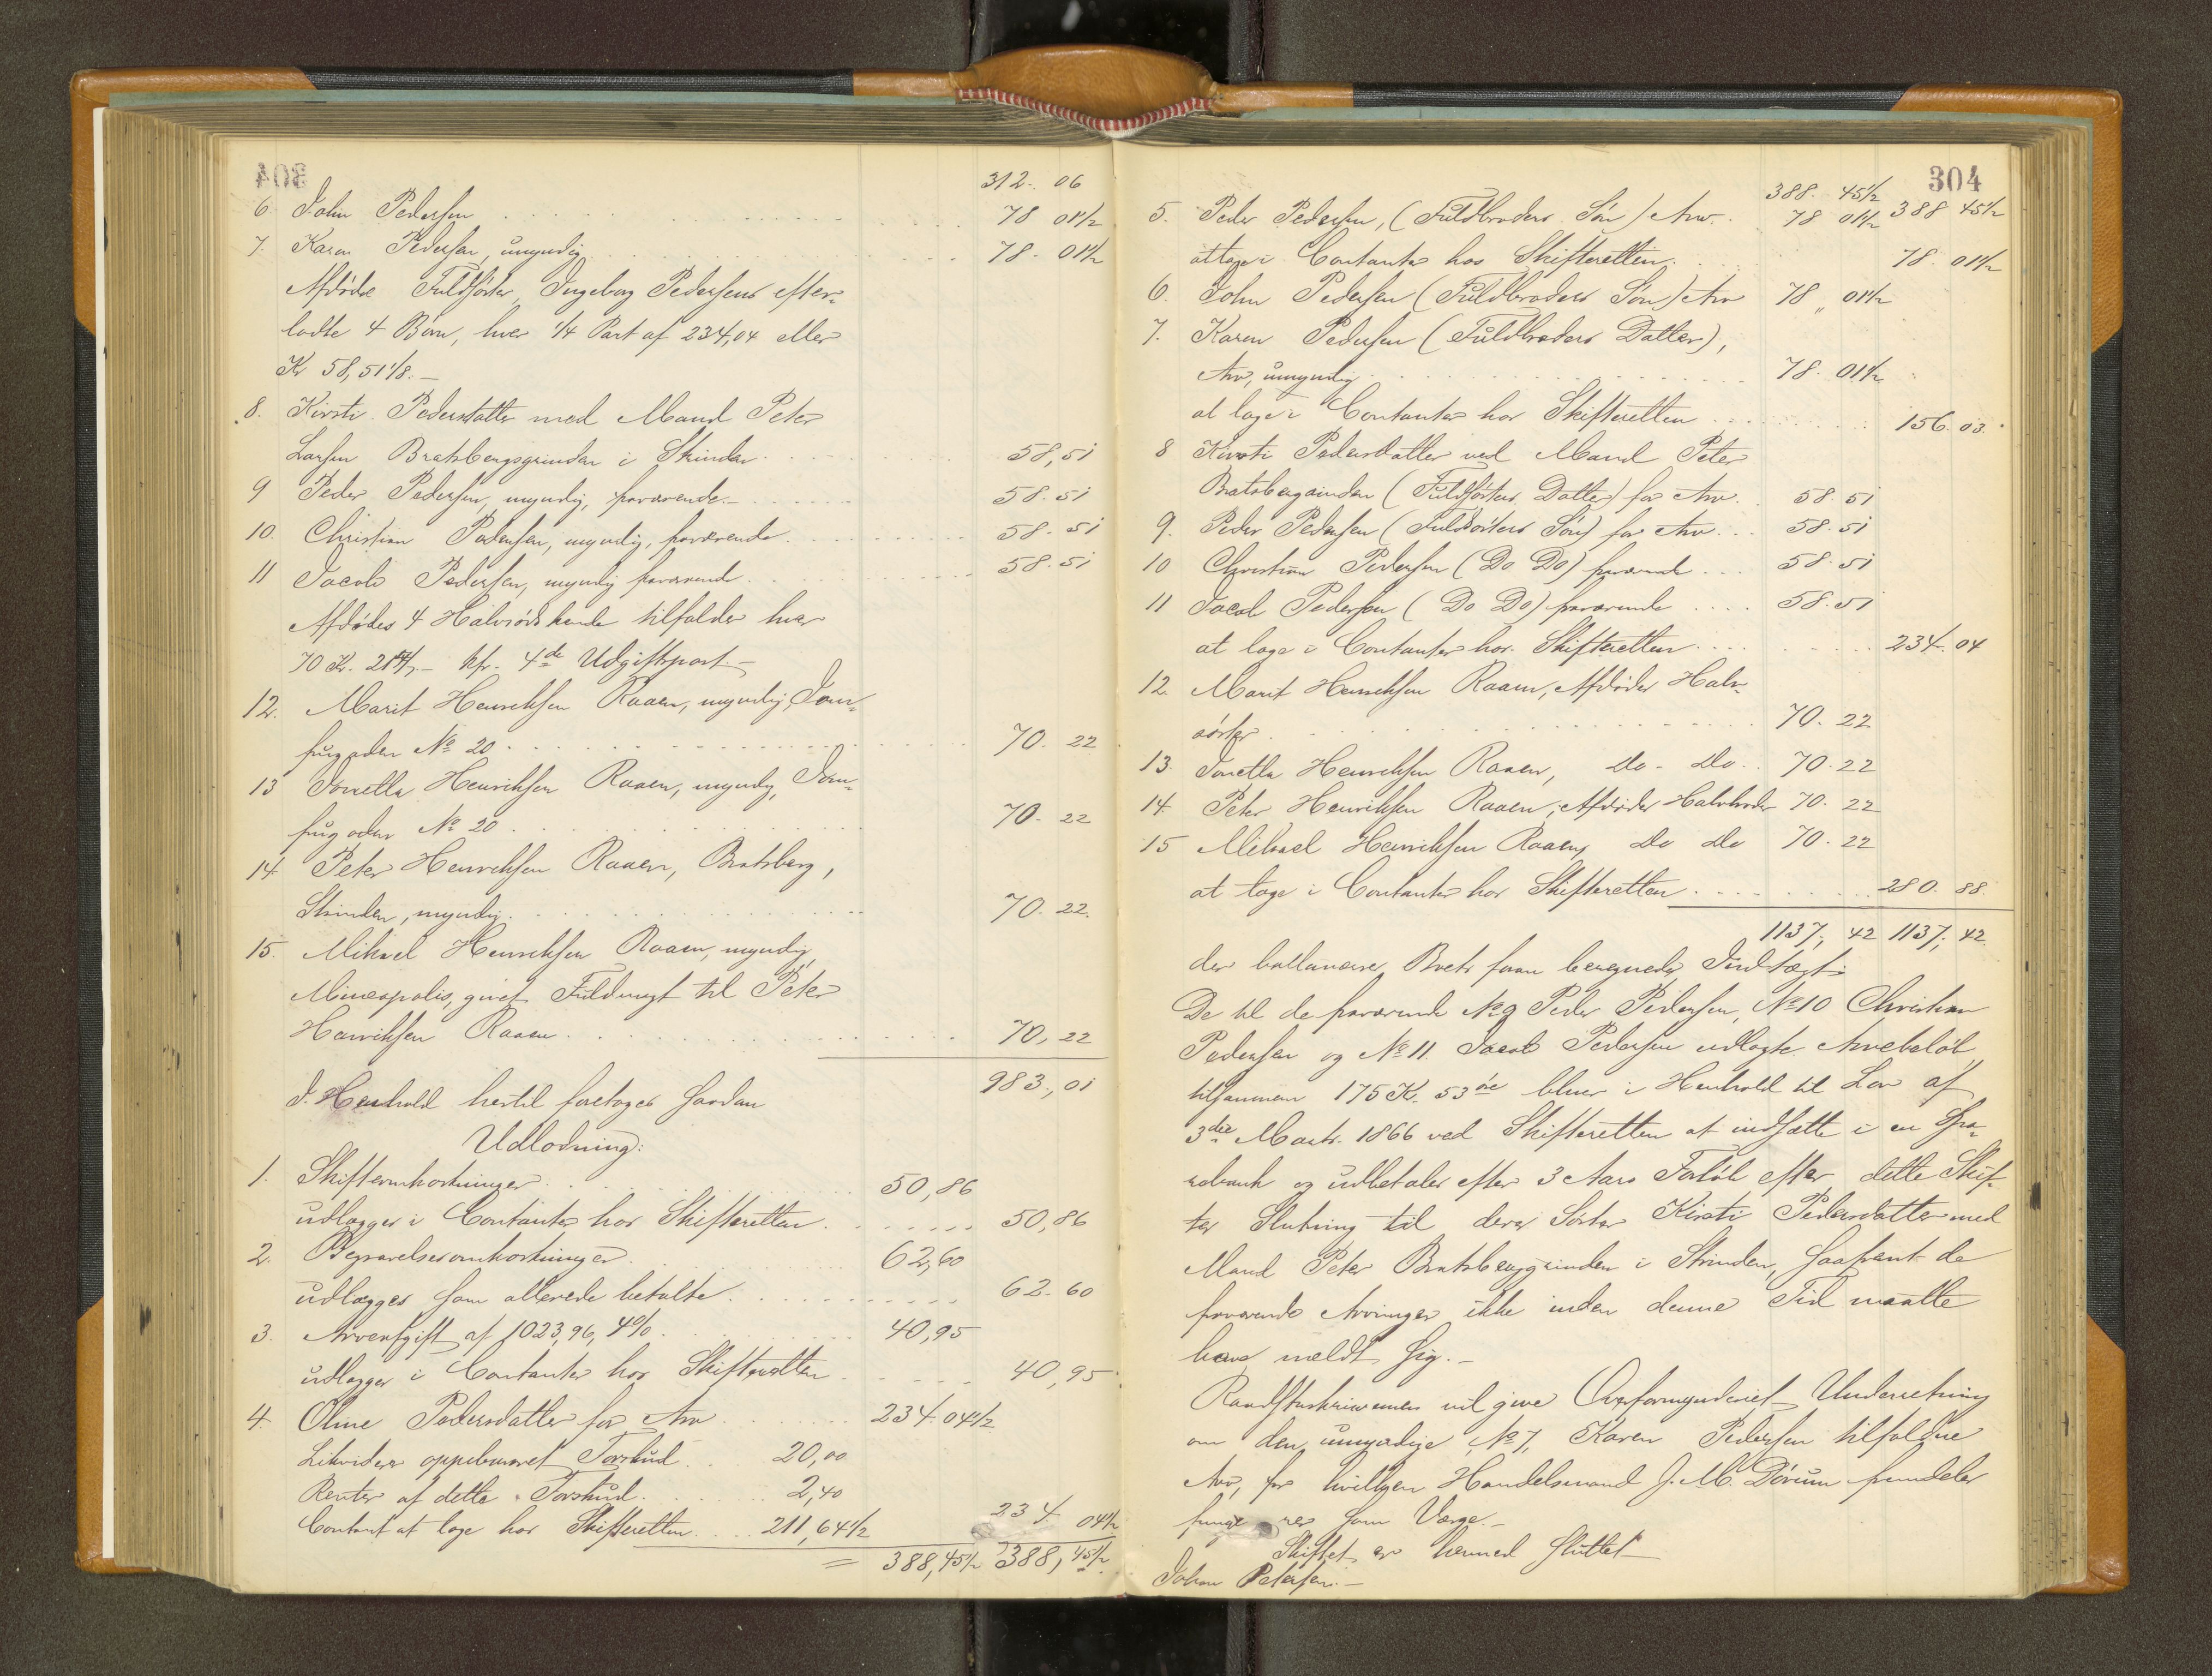 304
312. 06
6. John Pedersen 78 01½
7. Karen Pedersen, umyndig 78. 01½
Afdødes Fuldsøster, Ingeborg Pedersens efter-
ladte 4 Børn, hver 1/4 Part af 234,04 eller
Kr 58,51 1/8.-
8. Kirsti Pedersdatter med Mand Peter
Larsen Bratsbergsgrinden i Strinden 58,51
9 Peder Pedersen, myndig, fraværende.- 58.51
10. Christian Pedersen, myndig, fraværende 58.51
11 Jacob Pedersen, myndig fraværende 58.51
Afdødes 4 Halvsødskende tilfalder hver
70 Kr. 21 - kfr. 4de Udgiftspost -
12. Marit Henriksen Raaen, myndig, Jom-
frugaden No 20 70. 22
13 Jonetta Henriksen Raaen, myndig, Jom-
frugaden No 20 70. 22
14 Peter Henriksen Raaen, Bratsberg,
Strinden, myndig. 70. 22.
15. Mikael Henriksen Raaen, myndig,
Mineapolis, givet Fuldmagt til Peter
Henriksen Raaen 70,22
983,01
I Henhold hertil foretoges saadan
Udlodning:
1. Skifteomkostninger 50,86
udlægges i Contanter hos Skifteretten 50,86
2. Begravelsesomkostninger 62,60
udlægges som allerede betalte 62.60
3. Arveafgift af 1023,96, 4% 40,95
udlægges i Contanter hos Skifteretten 40,95
4. Oline Pedersdatter for Arv 234.04½
Likvideres oppebaaret Forskud 20,00
Renter af dette Forskud 2,40
Contant at tage hos Skifteretten 211,64½ 234 04½
= 388,45½ 388,45½
304
388. 45½ 388 45½
5. Peder Pedersen, (Fuldbroders Søn) Arv. 78 01½
at tage i Contanter hos Skifteretten. 78. 01½
6. John Pedersen (Fuldbroders Søn) Arv 78 " 01½
7. Karen Pedersen (Fuldbroders Datter),
Arv, umyndig 78. 01½
at tage i Contanter hos Skifteretten 156.03.
8 Kirsti Pedersdatter ved Mand Peter
Bratsberggrinden (Fuldsøsters Datter) for Arv 58.51
9. Peder Pedersen (Fuldsøsters Søn) for Arv 58.51
10 Christian Pedersen (Do Do) fraværende 58.51
11 Jacob Pedersen (Do Do) fraværende 58.51
at tage i Contanter hos Skifteretten 234.04
12. Marit Henriksen Raaen, Afdødes Halv-
søster 70. 22
13. Jonetta Henriksen Raaen, do. do. 70.22
14. Peter Henriksen Raaen, Afdødes Halvbroder 70. 22
15 Mikael Henriksen Raaen, do do 70.22
at tage i Contanter hos Skifteretten 280. 88.
1137, 42 1137, 42.
der ballancerer Boets foran beregnede Indtægt.
De til de fraværende No 9 Peder Pedersen, No 10 Christian
Pedersen og No 11. Jacob Pedersen udlagte Arvebeløb
tilsammen 175 Kr. 53 øre bliver i Henhold til Lov af
3die Marts 1866 ved Skifteretten at indsætte i en Spa-
rebank og udbetales efter 3 Aars Forløb efter dette Skif-
tes Slutning til deres Søster Kirsti Pedersdatter med
Mand Peter Bratsberggrinden i Strinden, saafremt de
fraværende Arvinger ikke inden denne Tid maatte
have meldt sig.-
Raadstueskriveren vil give Overformynderiet Underretning
om den umyndige No 7, Karen Pedersen tilfaldne
Arv, for hvilken Handelsmand J. M. Dørum fremdeles
fungerer som Værge.-
Skiftet er hermed sluttet
Johan Petersen.-